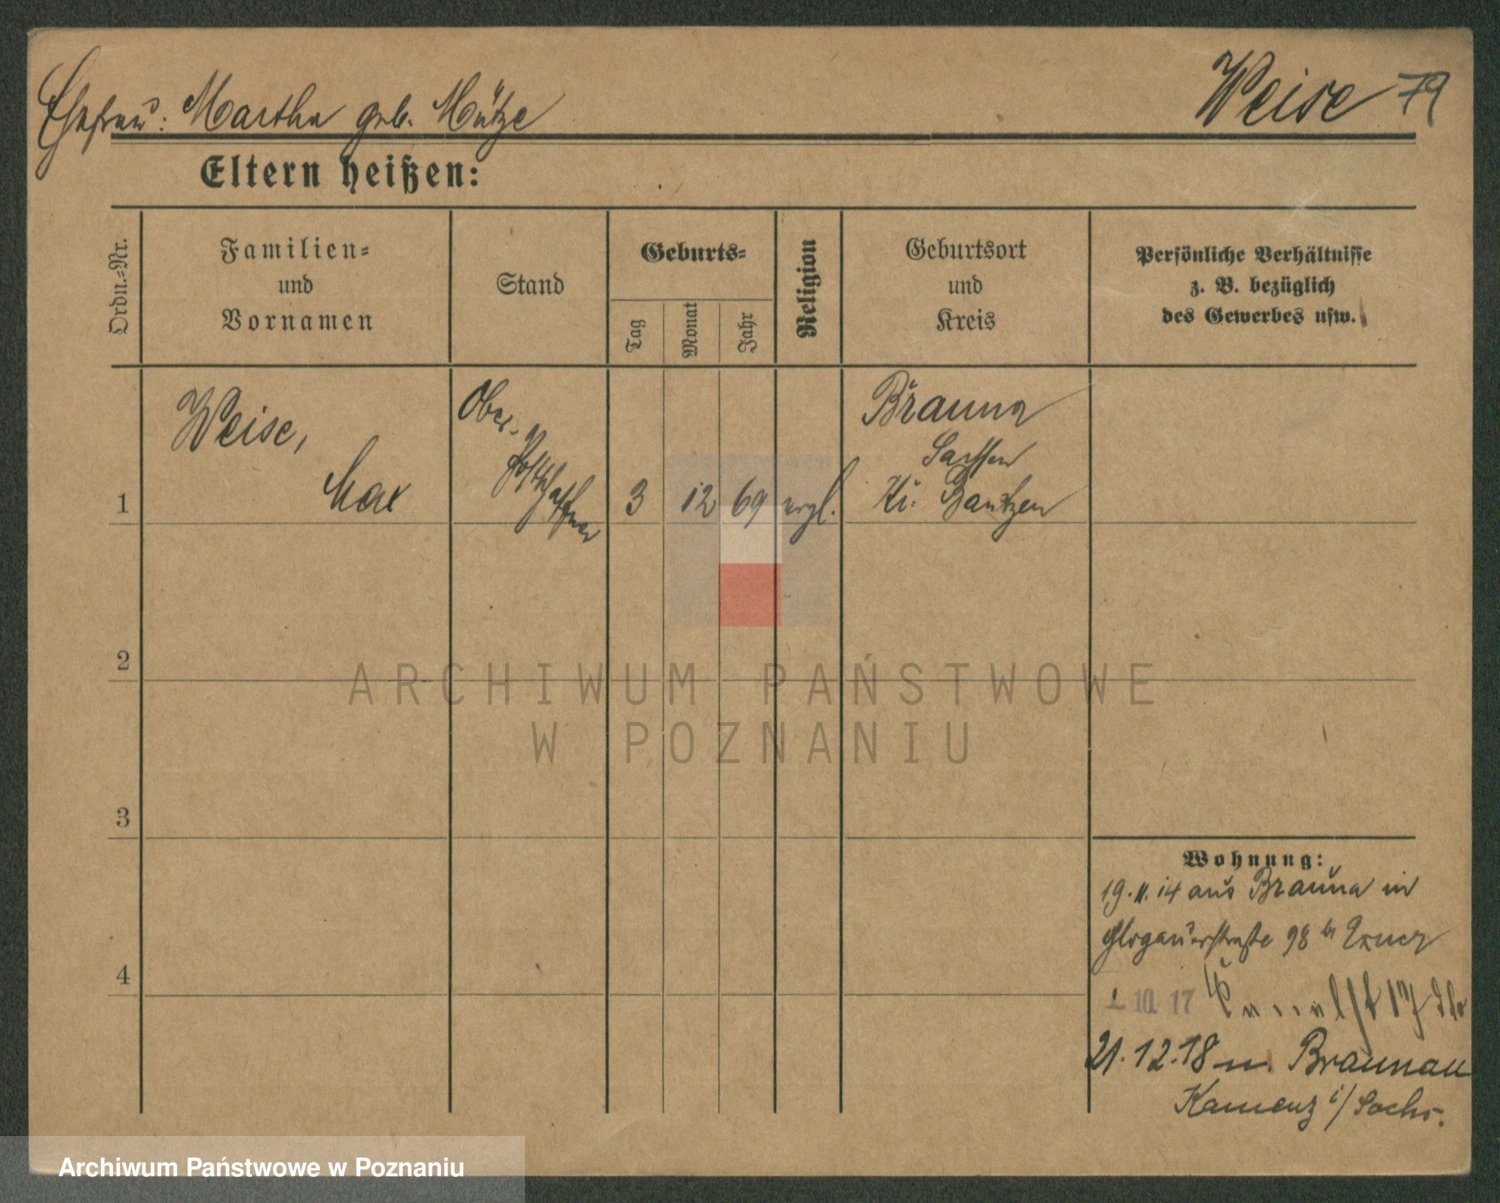 Weise 79
Ehefrau: Martha geb. Mütze
Eltern heißen:
Ordn.-Nr.
Familien-
und
Vornamen
Stand
Geburts-
Tag
Monat
Jahr
Religion
Geburtsort
und
Kreis
Persönliche Verhältnisse
z. B. bezüglich
des Gewerbes usw.
1
Weise,
Max
Ober-
Postschaffner
3
12
69
evgl.
Brauna
Sachsen
Kr. Bautzen
2
3
4
Wohnung:
19.11.14 aus Brauna in
Glogauerstraße 98 b/
10 17 Kanalst 17
21.12.18 n. Braunau
Kamenz i/ Sachs.
ARCHIWUM PAŃSTWOWE
W POZNANIU
Archiwum Państwowe w Poznaniu